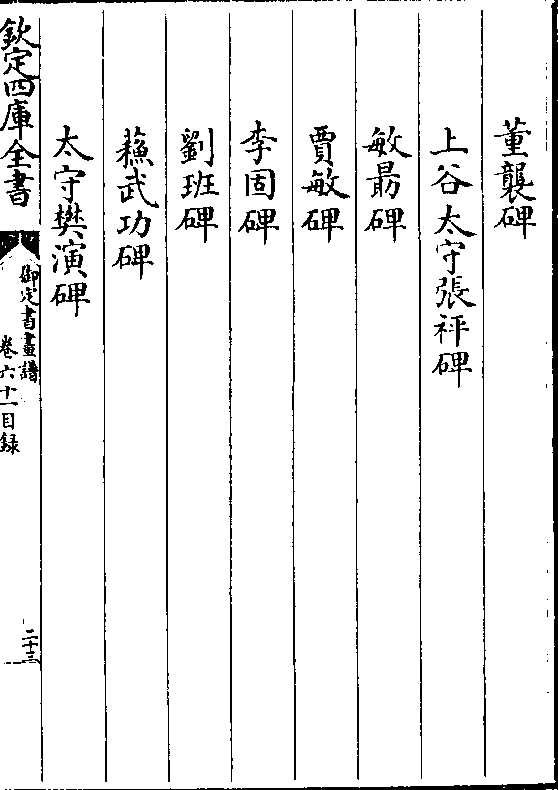 董襲碑
上谷太守張祁碑
敏勗碑
賈敏碑
李固碑
劉班碑
蘓武功碑
太守樊演碑
欽定四庫全書
御定書畫譜
卷六十一目録
二十三